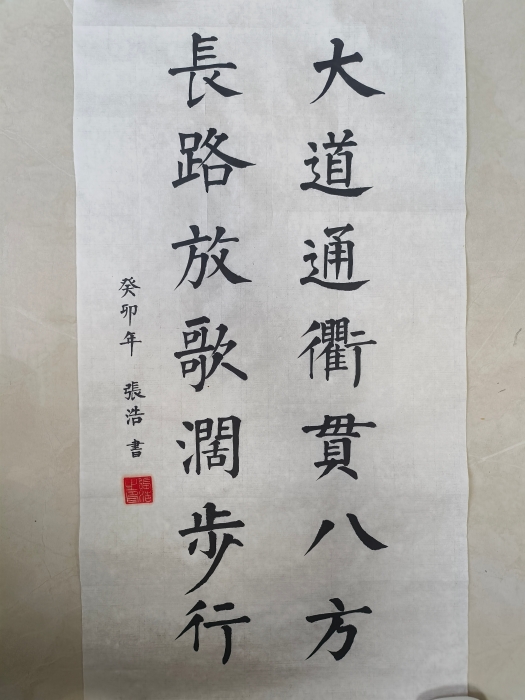 大道通衢貫八方
長路放歌濶步行
癸卯年 張浩書